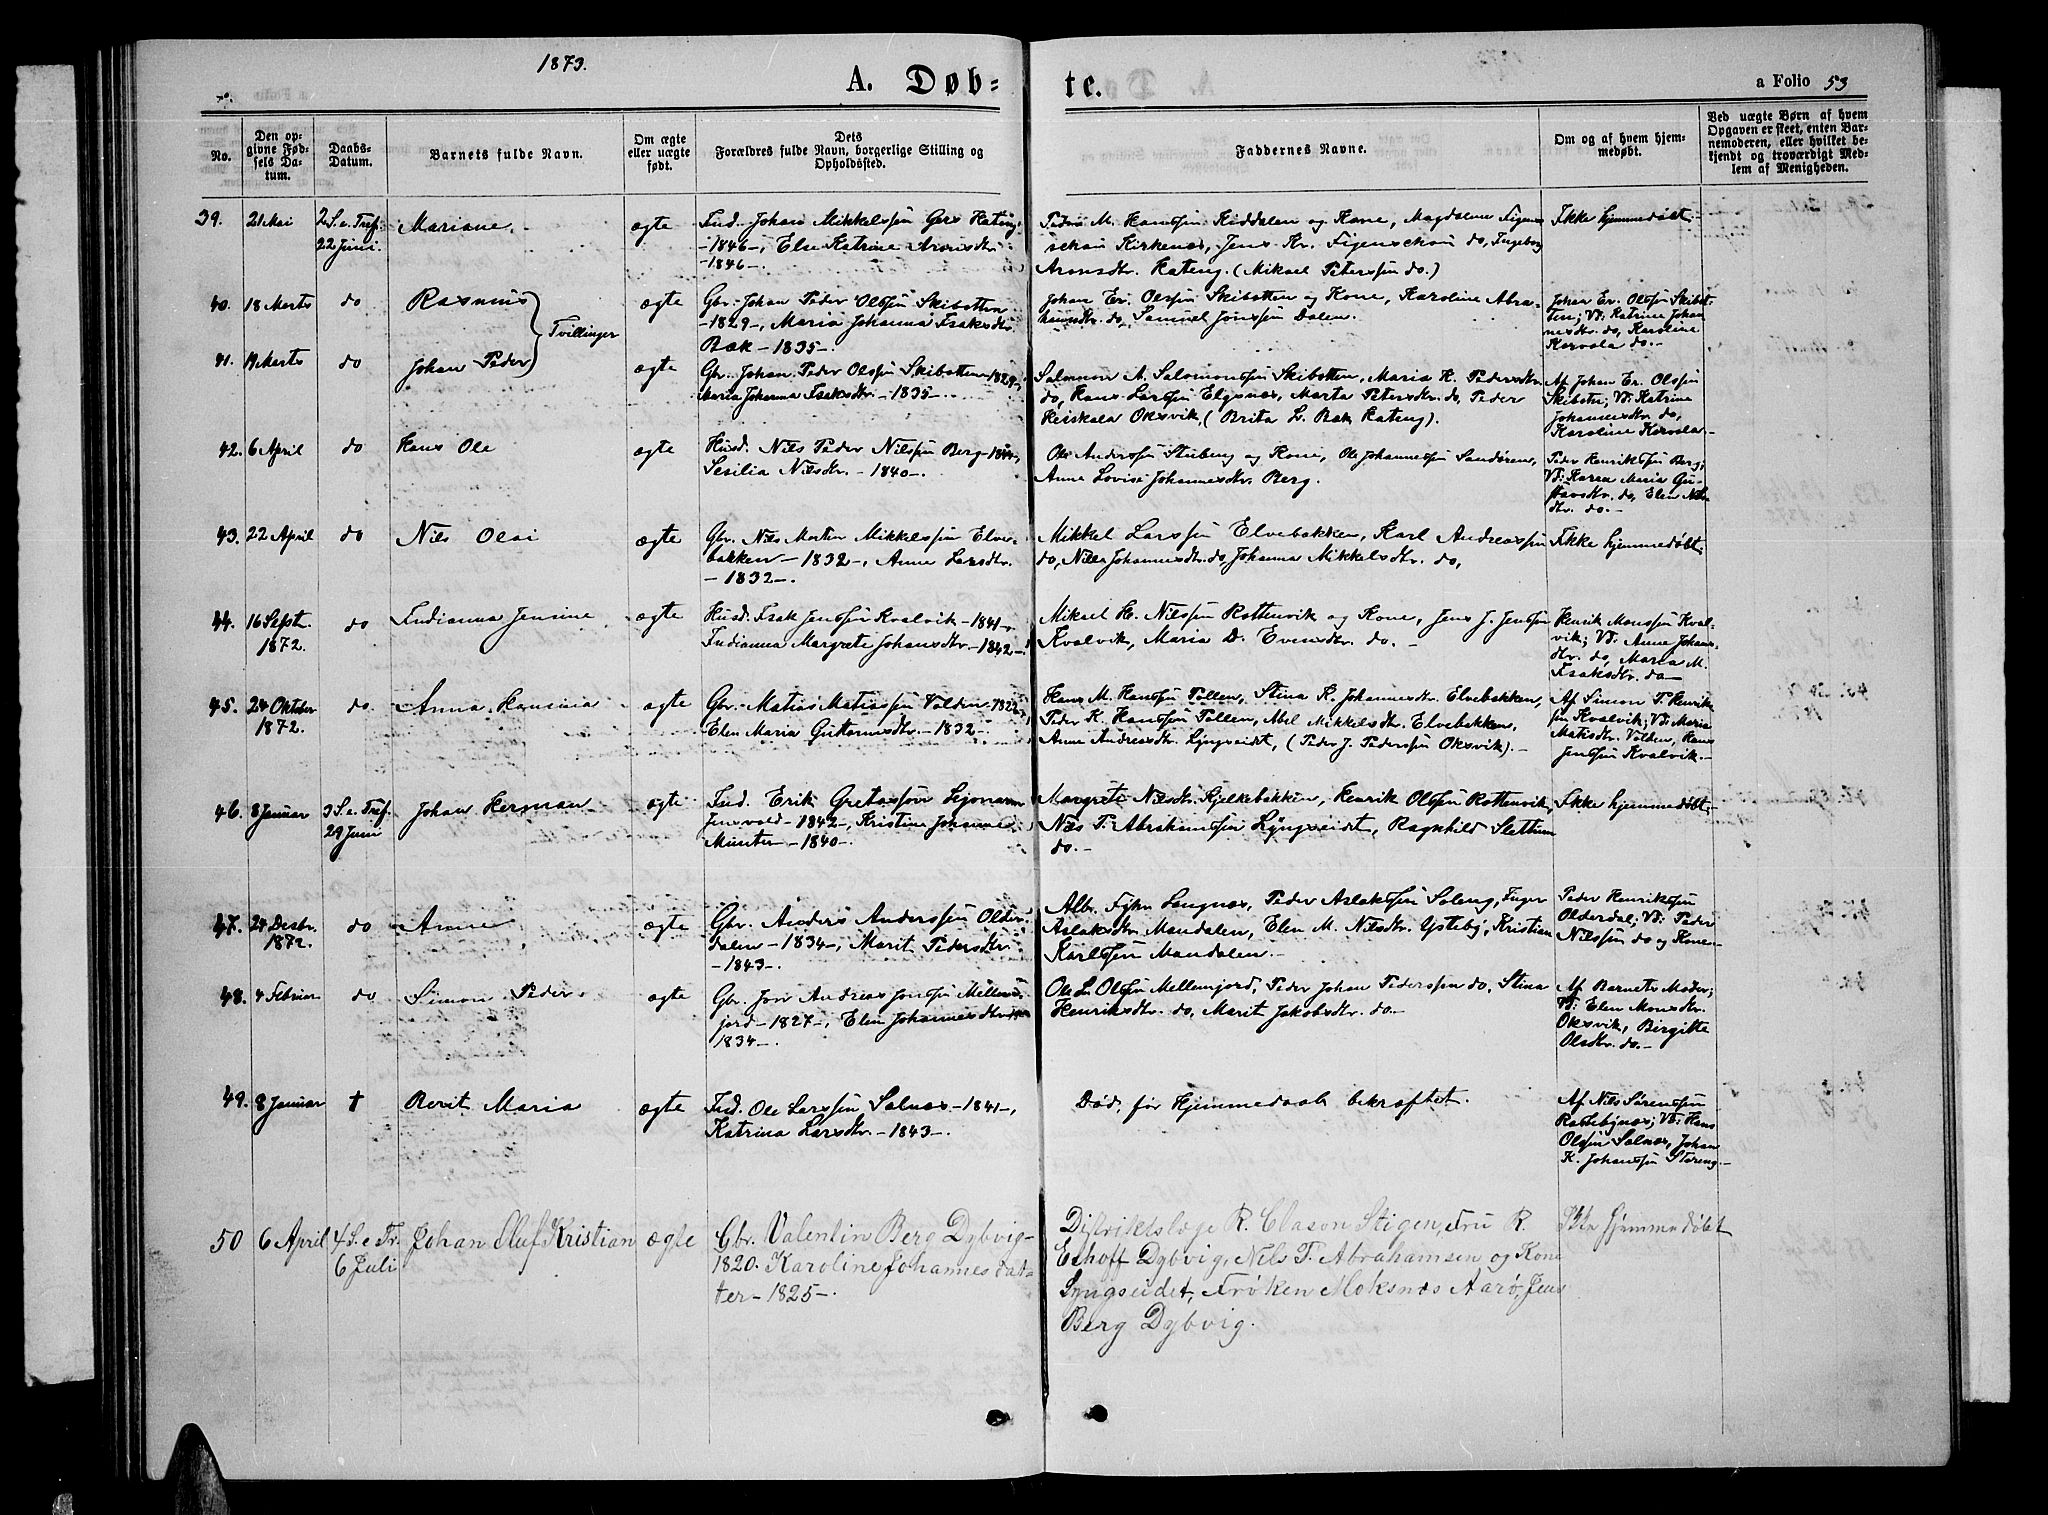 1873.
A. Døb= te.
a Folio 53
No.
Den op=
givne Fød=
sels Da=
tum.
Daabs=
Datum.
Barnets fulde Navn.
Om ægte
eller uægte
født.
Dets
Forældres fulde Navn, borgerlige Stilling og
Opholdssted.
Faddernes Navne.
Om og af hvem hjem=
medøbt.
Ved uægte Børn af hvem
Opgaven er skeet, enten Bar=
nemoderen, eller hvilket be=
kjendt og troværdigt Med=
lem af Menigheden.
39. 21 Mai
2 S. e. Tref.
22 Juni
Mariane
ægte
Ind. Johan Mikkelssøn Hateng
-1846-, Elen Katrine Aronsdtr.
-1846-.
Peder M. Hanssøn Kiddalen og Kone, Magdalena Figen=
schau Kirkenæs, Jens Kr. Figenschau do, Ingeborg
Aronsdtr. Hateng. (Mikael Peterssøn do.)
Ikke hjemmedøbt
40. 18 Marts
do
Rasmus
Tvillinger
ægte
Gbr. Johan Peder Olssøn Skibotten
-1829-, Maria Johanna Isaksdtr.
Bæk -1835-.
Johan Er. Olssøn Skibotten og Kone, Karoline Abra=
hamsdtr. do, Samuel Jonssøn Dalen.
Johan Er. Olssøn Skibot=
ten; Vd: Katrine Johan
nesdtr. do, Karoline
Kervela do.-
41. 19 Marts
do
Johan Peder
ægte
Gbr. Johan Peder Olssøn Skibotten -1829-,
Maria Johanna Isaksdtr. -1835-.
Salomon A. Salomonssøn Skibotten, Maria K. Pedersdtr.
do, Hans Larssøn Elgsnæs, Marta Petersdtr. do, Peder
Heiskala Oksvik, (Brita L. Bæk Hateng).
Af Johan Er. Olssøn
Skibotn; Vd: Katrine
Johannesdtr. do,
Karoline Kervala.-
42. 6 April
do
Hans Ole
ægte
Husd. Nils Peder Nilssøn Berg
Sesilia Nilsdtr. -1840-.
Ole Anderssøn Stuberg og Kone, Ole Johannessøn Sandøren,
Anne Lovise Johannesdtr. Berg.
Peder Henrikssøn Berg;
Vd: Karen Maria Gu=
stavsdtr. do, Elen Nils
dtr. do.-
43. 22 April
do
Nils Olai
ægte
Gbr. Nils Martin Mikkelssøn Elve=
bakken -1832-, Anne Larsdtr.
-1832-.
Mikkel Larssøn Elvebakken, Karl Andreassøn
do, Nilla Johannesdtr. do, Johanna Mikkelsdtr. do,
Ikke hjemmedøbt.
44. 16 Septr.
1872.
do
Indianna Jensine
ægte
Husd. Isak Jenssøn Kvalvik -1841-,
Indianna Margrete Johansdtr. -1842-.
Mikael H. Nilssøn Rottenvik og Kone, Jens J. Jenssøn
Kvalvik, Maria D. Evensdtr. do.-
Henrik Monssøn Kval=
vik; Vd: Anne Johans
dtr. do, Maria M.
Isaksdtr. do
45. 24 Oktober
1872.
do.
Anna Hansina
ægte
Gbr. Matias Matiassøn Volden -1822-,
Elen Maria Guttormsdtr. -1832-.
Hans M. Hanssøn Pollen, Stina K. Johannesdtr. Elvebakken,
Peder K. Hanssøn Pollen, Abel Mikkelsdtr. Elvebakken,
Anne Andreasdtr. Lyngseidet, (Peder J. Pederssøn Oksvik).-
Af Simon P. Henrik
søn Kvalvik; Vd: Maria
Matisdtr. Volden, Hans
Jenssøn Kvalvik.-
46. 8 Januar
3 S. e. Tref.
29 Juni
Johan Herman
ægte
Ind. Erik Gretassøn
Jensvold -1842-, Kristine Johanne
Münter -1840-.
Margrete Nilsdtr. Kjelkebakken, Henrik Olssøn Rottenvik,
Nils T. Abrahamssøn Lyngseidet, Ragnhild Slettum
do.-
Ikke hjemmedøbt.
47. 24 Desbr.
1872.
do
Anne
ægte
Gbr. Anders Anderssøn Older=
dalen -1834-, Marit Pedersdtr.
-1843-.
Albr. Langnæs, Peder Aslakssøn Soleng, Inger
Aslaksdtr. Mandalen, Elen M. Nilsdtr. Ysteby, Kristian
Karlssøn Mandalen.-
Peder Henrikssøn
Olderdal; Vd: Peder
Nilssøn do og Kone-
48. 4 Februar
do
Simon Peder.
ægte
Gbr. Jon Andreas Jonssøn Mellem=
jord -1827-, Elen Johannesdtr.
1834-.
Ole L. Olssøn Mellemjord, Peder Johan Pederssøn do, Stina
Henriksdtr. do, Marit Jakobsdtr. do.-
Af Barnets Moder;
Vd: Elen Monsdtr.
Oksvik, Birgitte
Olsdtr. do.-
49. 8 Januar
†
Berit Maria
ægte
Ind. Ole Larssøn Salnæs -1841-,
Katrina Larsdtr. -1843-.
Død, før Hjemmedaab bekræftet.
Af Nils Sørenssøn
Rottebynæs; Vd: Hans
Olssøn Salnæs, Johan
K. Johanssøn Støreng.-
50 6 April
4 S. e Tr.
6 Juli
Johan Oluf Kristian
ægte
Gbr. Valentin Berg Dybvig-
1820. Karoline Johannesdat=
ter -1825-.
Distriktslæge R. Clason Stigen, Fru R.
Eshoff Dybvig, Nils T. Abrahamsen og Kone
Lyngseidet, Frøken Moksnæs Aarø, Jens
Berg Dybvig.
Ikke hjemmedøbt